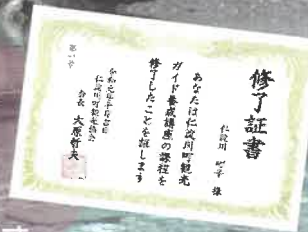 修了証書
仁淀川 町子 様
あなたは仁淀川町観光
ガイド養成講座の課程を
修了したことを証します
仁淀川町観光協会
会長 大原哲夫